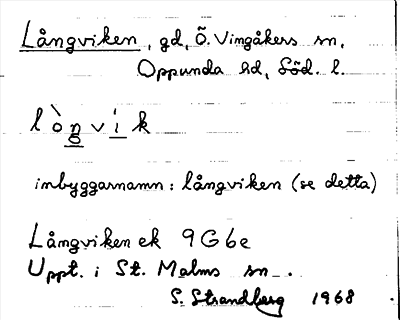 Långviken, gd, Ö. Vingåkers sn,
Oppunda hd, Söd. l.
l ò n g v i k
inbyggarnamn: långviken (se detta)
Långviken ek 9G6e
Uppt. i St. Malms sn.
S. Strandberg 1968